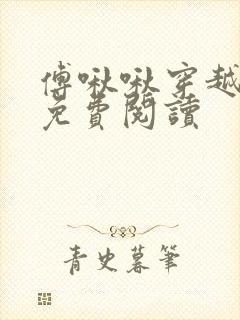 傅啾啾穿越
免費閱讀
青史暮筆